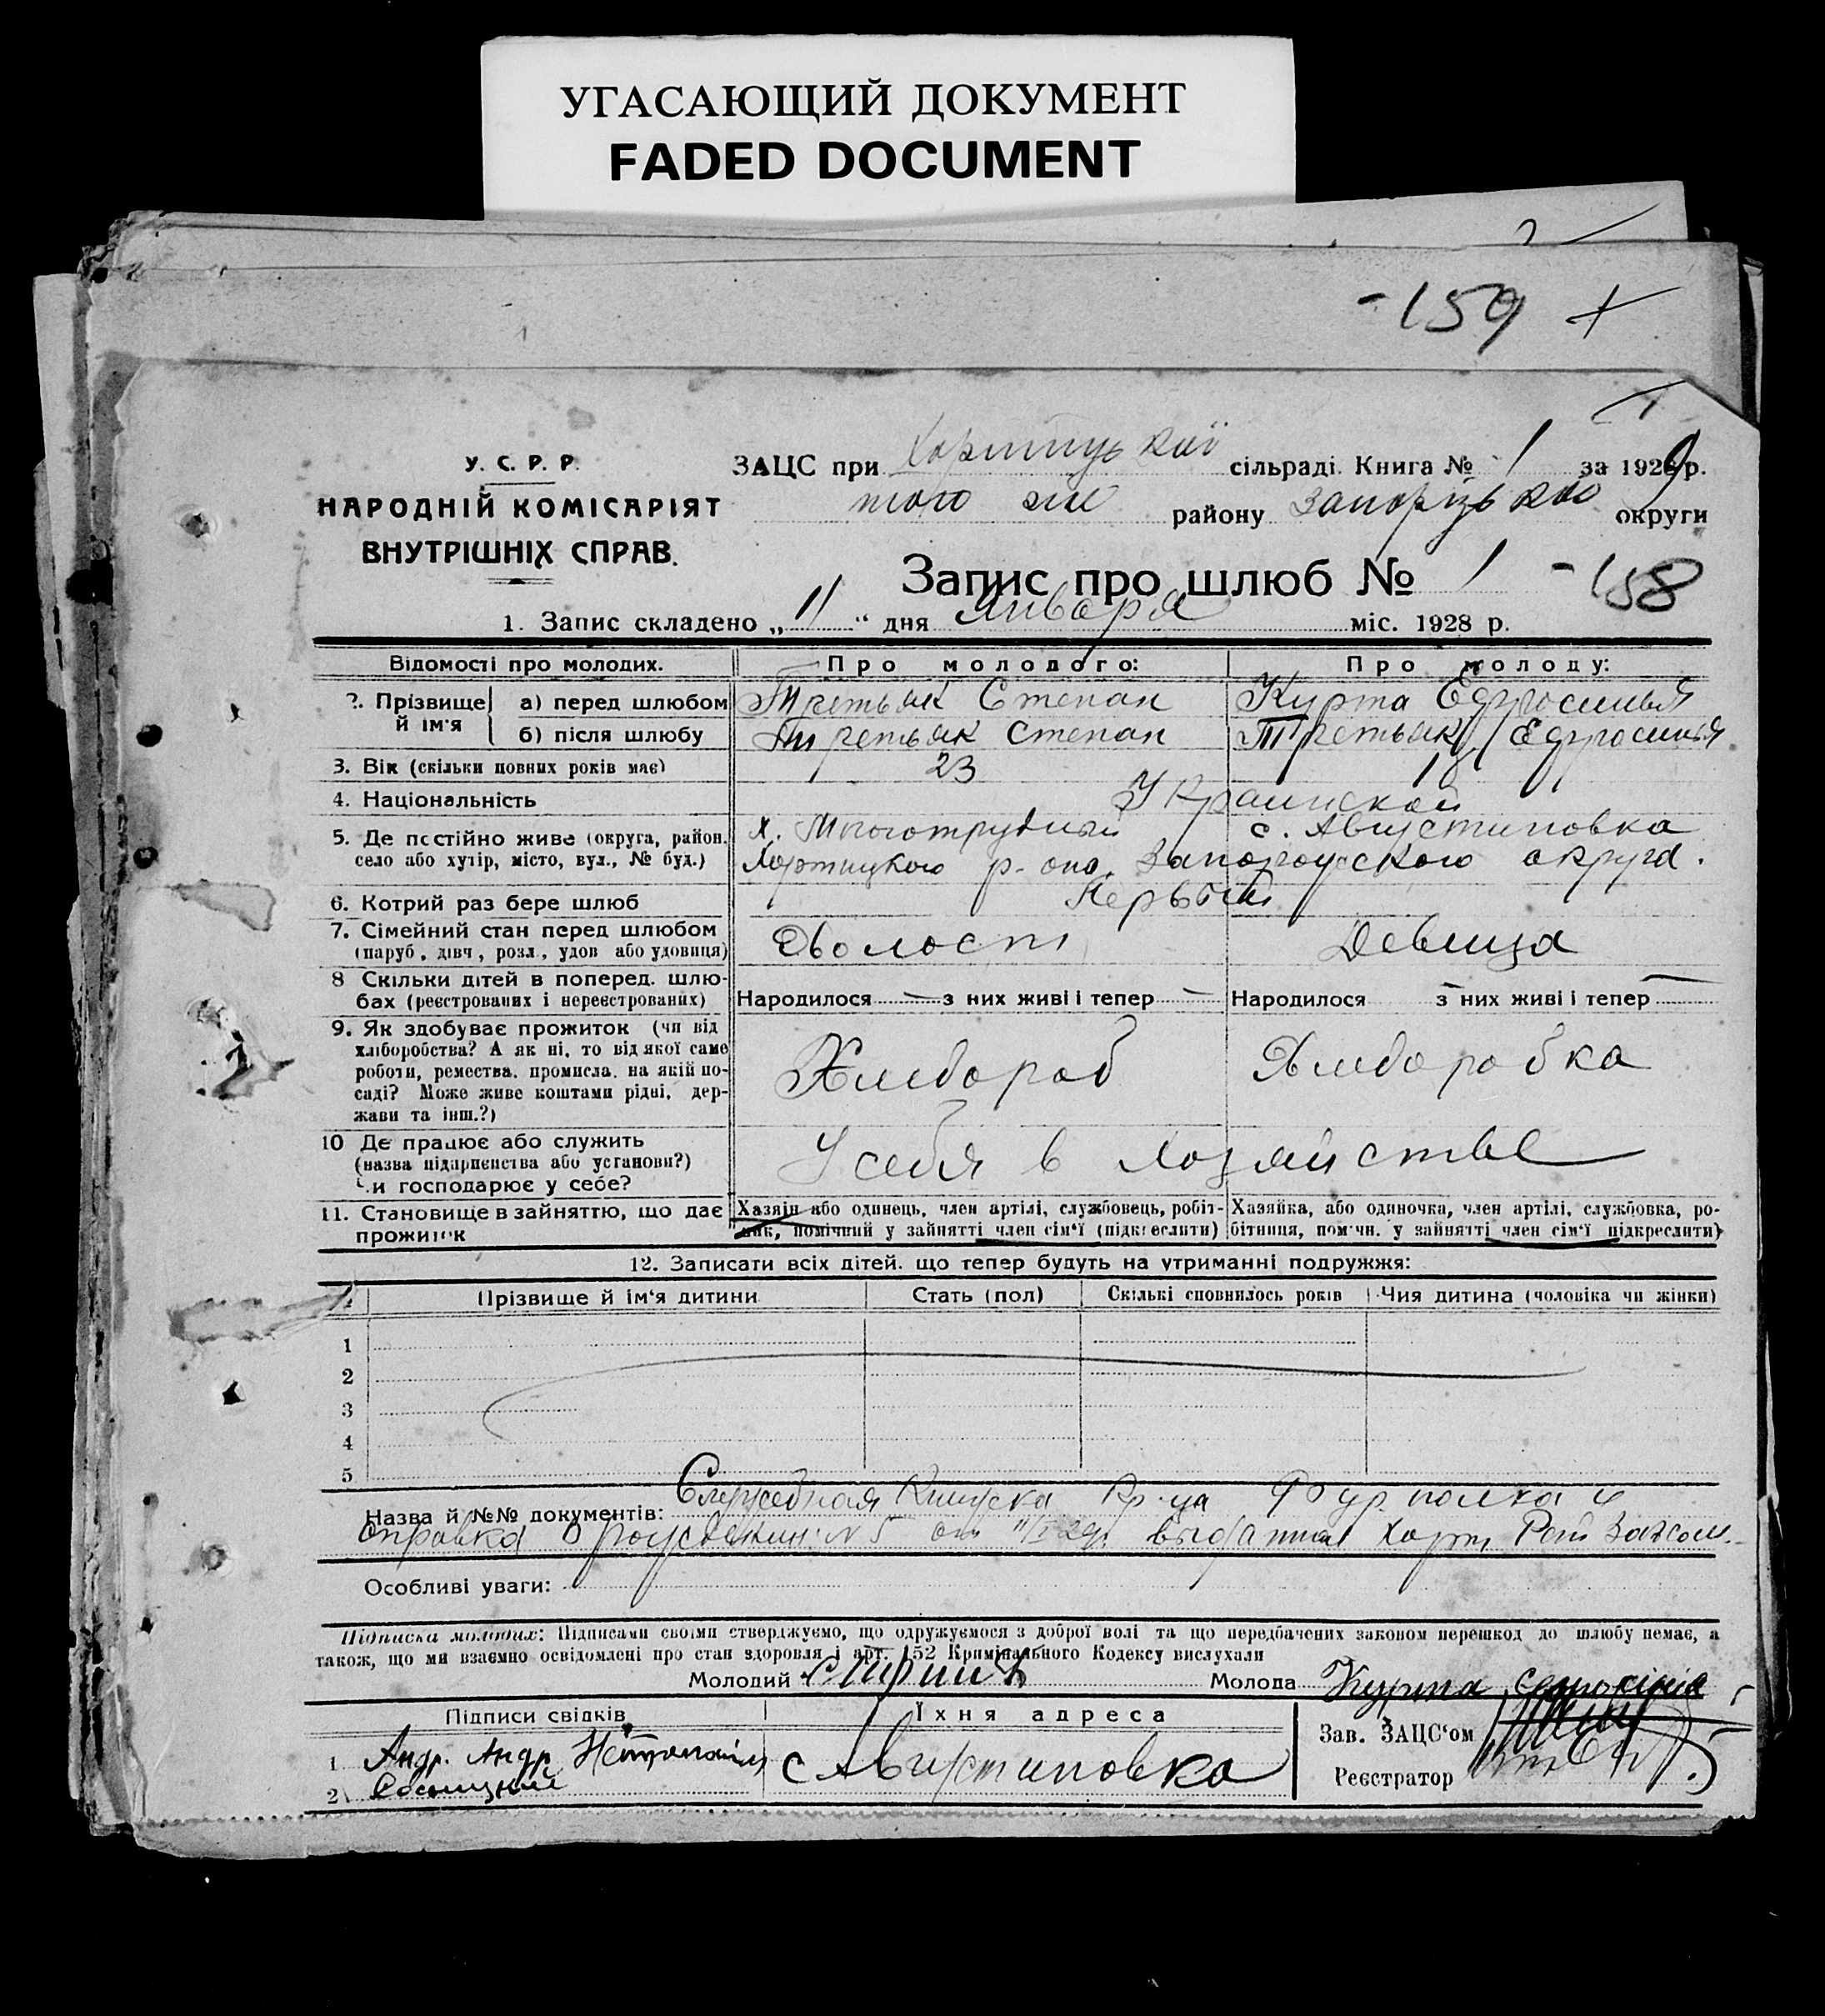 УГАСАЮЩИЙ ДОКУМЕНТ
FADED DOCUMENT
-159
У. С. Р. Р.
НАРОДНІЙ КОМІСАРІЯТ
ВНУТРІШНІХ СПРАВ.
ЗАЦС при Хортицької сільраді. Книга № 1 за 1929 р.
того же району Запорізької округи
Запис про шлюб № 1 -158
1. Запис складено „11“ дня Января міс. 1928 р.
Відомості про молодих. Про молодого: Про молоду:
2. Прізвище й ім'я а) перед шлюбом Третьяк Степан Курта Ефросинья
б) після шлюбу Третьяк Степан Третьяк Ефросинья
3. Вік (скільки повних років має) 23 18
4. Національність Украинской
5. Де постійно живе (округа, район, х. Многотрудный с. Августиновка
село або хутір, місто, вул., № буд.) Хортицкого р-она Запорожского округа.
6. Котрий раз бере шлюб Первый
7. Сімейний стан перед шлюбом
(паруб., дівч., розл., удов або удовиця) Холост Девица
8 Скільки дітей в поперед. шлю-
бах (реєстрованих і нереєстрованих) Народилося — з них живі і тепер — Народилося з них живі і тепер —
9. Як здобуває прожиток (чи від
хліборобства? А як ні, то від якої саме
роботи, ремества, промисла, на якій по-
саді? Може живе коштами рідні, дер-
жави та інш.?) Хлебороб Хлеборобка
10 Де працює або служить
(назва підприємства або установи?)
Чи господарює у себе? У себя в хозяйстве
11. Становище в зайняттю, що дає
прожиток
Хазяїн або одинець, член артілі, службовець, робіт-
ник, помічний у зайнятті член сім'ї (підкреслити)
Хазяйка, або одиночка, член артілі, службовка, ро-
бітниця, помічн. у зайнятті член сім'ї підкреслити)
12. Записати всіх дітей, що тепер будуть на утриманні подружжя:
Прізвище й ім'я дитини Стать (пол) Скількі сповнилось років Чия дитина (чоловіка чи жінки)
1
2
3
4
5
Назва й №№ документів: Служебная Книжка Кр-ца полка и
справка о рождении № 5 от 11/I 29 г. выданная Хорт Рай Загсом.
Особливі уваги:
Підписка молодих: Підписами своїми стверджуємо, що одружуємося з доброї волі та що передбачених законом перешкод до шлюбу немає, а
також, що ми взаємно освідомлені про стан здоровля і арт. 152 Кримінального Кодексу вислухали
Молодий Молода Курта
Підписи свідків Їхня адреса
1 Андр. Андр.
2
с Августиновка
Зав. ЗАЦС'ом
Реєстратор